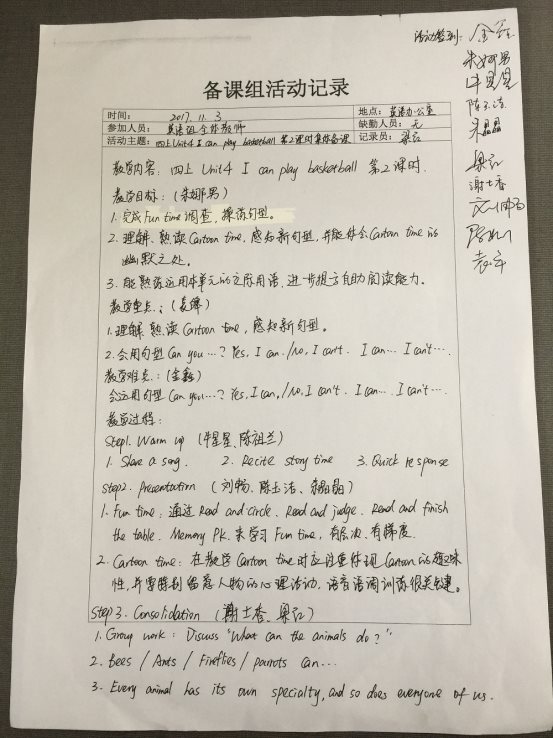 活动签到：金鑫
朱娜男
牛星星
陈玉洁
朱晶晶
梁红
谢士香
袁军
备课组活动记录
时间： 2017. 11. 3 地点：英语办公室
参加人员： 英语组全体教师 缺勤人员：无
活动主题：四上Unit4 I can play basketball 第2课时集体备课 记录员：梁红
教学内容：四上 Unit4 I can play basketball 第2课时.
教学目标：(朱娜男)
1. 完成Fun time 调查，操练句型。
2. 理解、熟读 Cartoon time, 感知新句型，并能体会Cartoon time的
幽默之处。
3. 能熟练运用本单元的交际用语，进一步提高自助阅读能力。
教学重点：(袁军)
1. 理解、熟读 Cartoon time, 感知新句型。
2. 会用句型 Can you…? Yes, I can./No, I can't. I can… I can't….
教学难点：(金鑫)
会运用句型 Can you…? Yes, I can./No, I can't. I can… I can't….
教学过程：
Step1. Warm up (牛星星、陈祖兰)
1. Share a song. 2. Recite story time 3. Quick response
Step2. Presentation (刘畅、陈玉洁、朱晶晶)
1. Fun time: 通过 Read and circle. Read and judge. Read and finish
the table. Memory PK. 来学习 Fun time, 有层次、有梯度.
2. Cartoon time: 在教学 Cartoon time 时应注重体现 Cartoon的趣味
性，并要特别留意人物的心理活动，语音语调训练很关键。
Step 3. Consolidation (谢士香、梁红)
1. Group work: Discuss "What can the animals do?"
2. Bees / Ants / Fireflies / parrots can…
3. Every animal has its own specialty, and so does everyone of us.